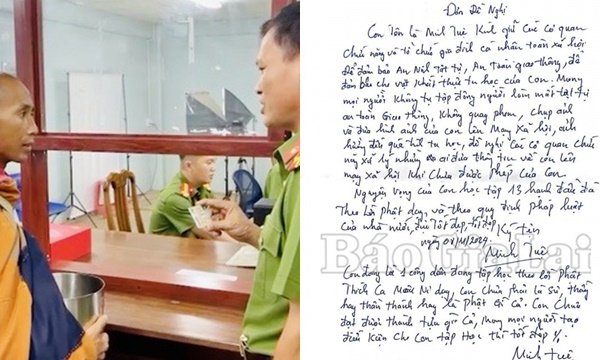 Đơn Đề Nghị
Con Tên Là Minh Tuệ Kính gửi Các cơ quan
chức năng và tổ chức gia đình cá nhân toàn xã hội
Để đảm bảo An Ninh Trật tự, An toàn giao thông, để
đảm bảo cho việc Khất thực tu học của Con. Mong
mọi người Không tụ tập đông người làm mất trật tự
an toàn Giao thông, Không quay phim, chụp ảnh
và đưa hình ảnh của con lên Mạng Xã hội, ảnh
hưởng đến quá trình tu học, đề nghị Các cơ quan chức
năng xử lý những ai đưa thông tin về con lên
mạng xã hội Khi Chưa được phép của Con
Nguyện Vọng của Con học tập 13 hạnh đầu đà
Theo lời phật dạy, và theo quy định pháp luật
của nhà nước, đời Tốt đẹp, tốt đạo
Ký tên
ngày
Minh Tuệ
Báo Gia Lai
Con đang là 1 công dân đang tập học theo lời Phật
Thích Ca Mâu Ni dạy, Con Chưa phải là Sư, thầy
hay thần thánh hay là Phật Gì Cả. Con Chưa
đạt được thành tựu gì Cả, Mong mọi người tạo
điều Kiện Cho Con tập Học Thì tốt đẹp
Minh Tuệ